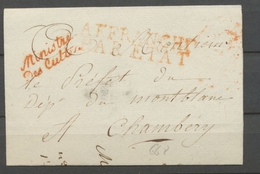 Ministre
Des Cultes
AFFRANCHI
PAR ETAT
Monsieur
le Préfet du
Dép.t du montblanc
A Chambery